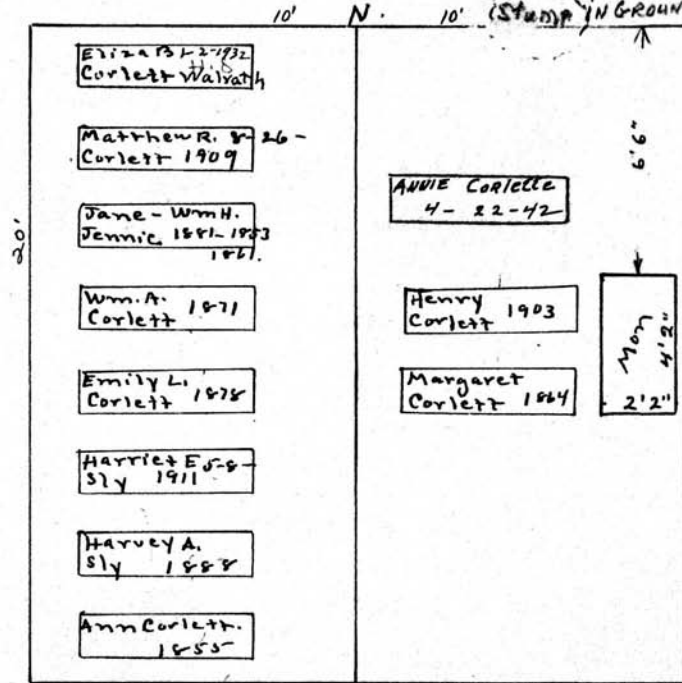 10' N. 10' (Stump IN GROUN
Eliza B 1-2-1932
Corlett Walrath
Matthew R. 8-26-
Corlett 1909
Jane - Wm H.
Jennie 1881-1853
1861.
Wm. A.
Corlett 1871
Emily L.
Corlett 1878
Harriet E 5-8-
Sly 1911
Harvey A.
Sly 1888
Ann Corlett.
1855
20'
ANNIE Corlette
4-22-42
Henry
Corlett 1903
Margaret
Corlett 1864
6'6"
Mon
4'2"
2'2"